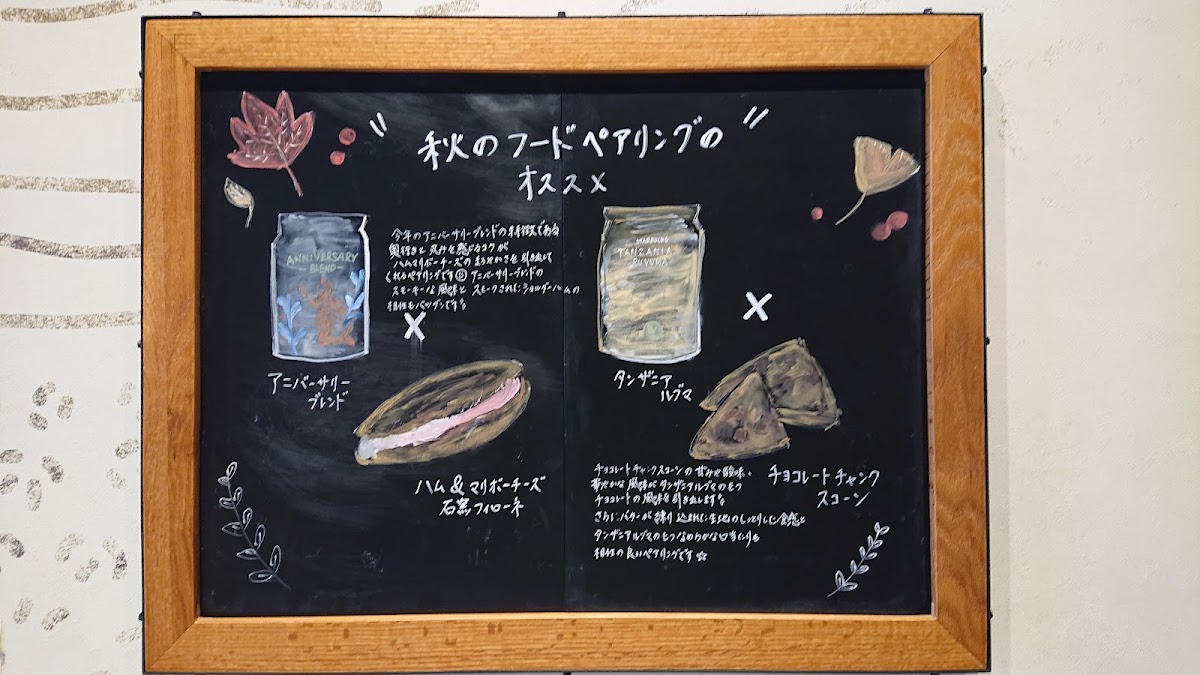 秋のフードペアリングの
オススメ
ANNIVERSARY
BLEND
アニバーサリー
ブレンド
今年のアニバーサリーブレンドの特徴である
奥行きと丸みを感じるコクが
ハムマリボーチーズのまろやかさを引き出して
くれるペアリングです アニバーサリーブレンドの
スモーキーな風味とスモークされたショルダーハムの
相性もバツグンです
×
ハム & マリボーチーズ
石窯フィローネ
STARBUCKS
TANZANIA
RUVUMA
タンザニア
ルブマ
×
チョコレートチャンク
スコーン
チョコレートチャンクスコーンの甘みや酸味、
華やかな風味がタンザニアルブマのもつ
チョコレートの風味を引き出します。
さらにバターが練り込まれた生地のしっとりした食感と
タンザニアルブマのもつなめらかな口当たりも
相性の良いペアリングです☆